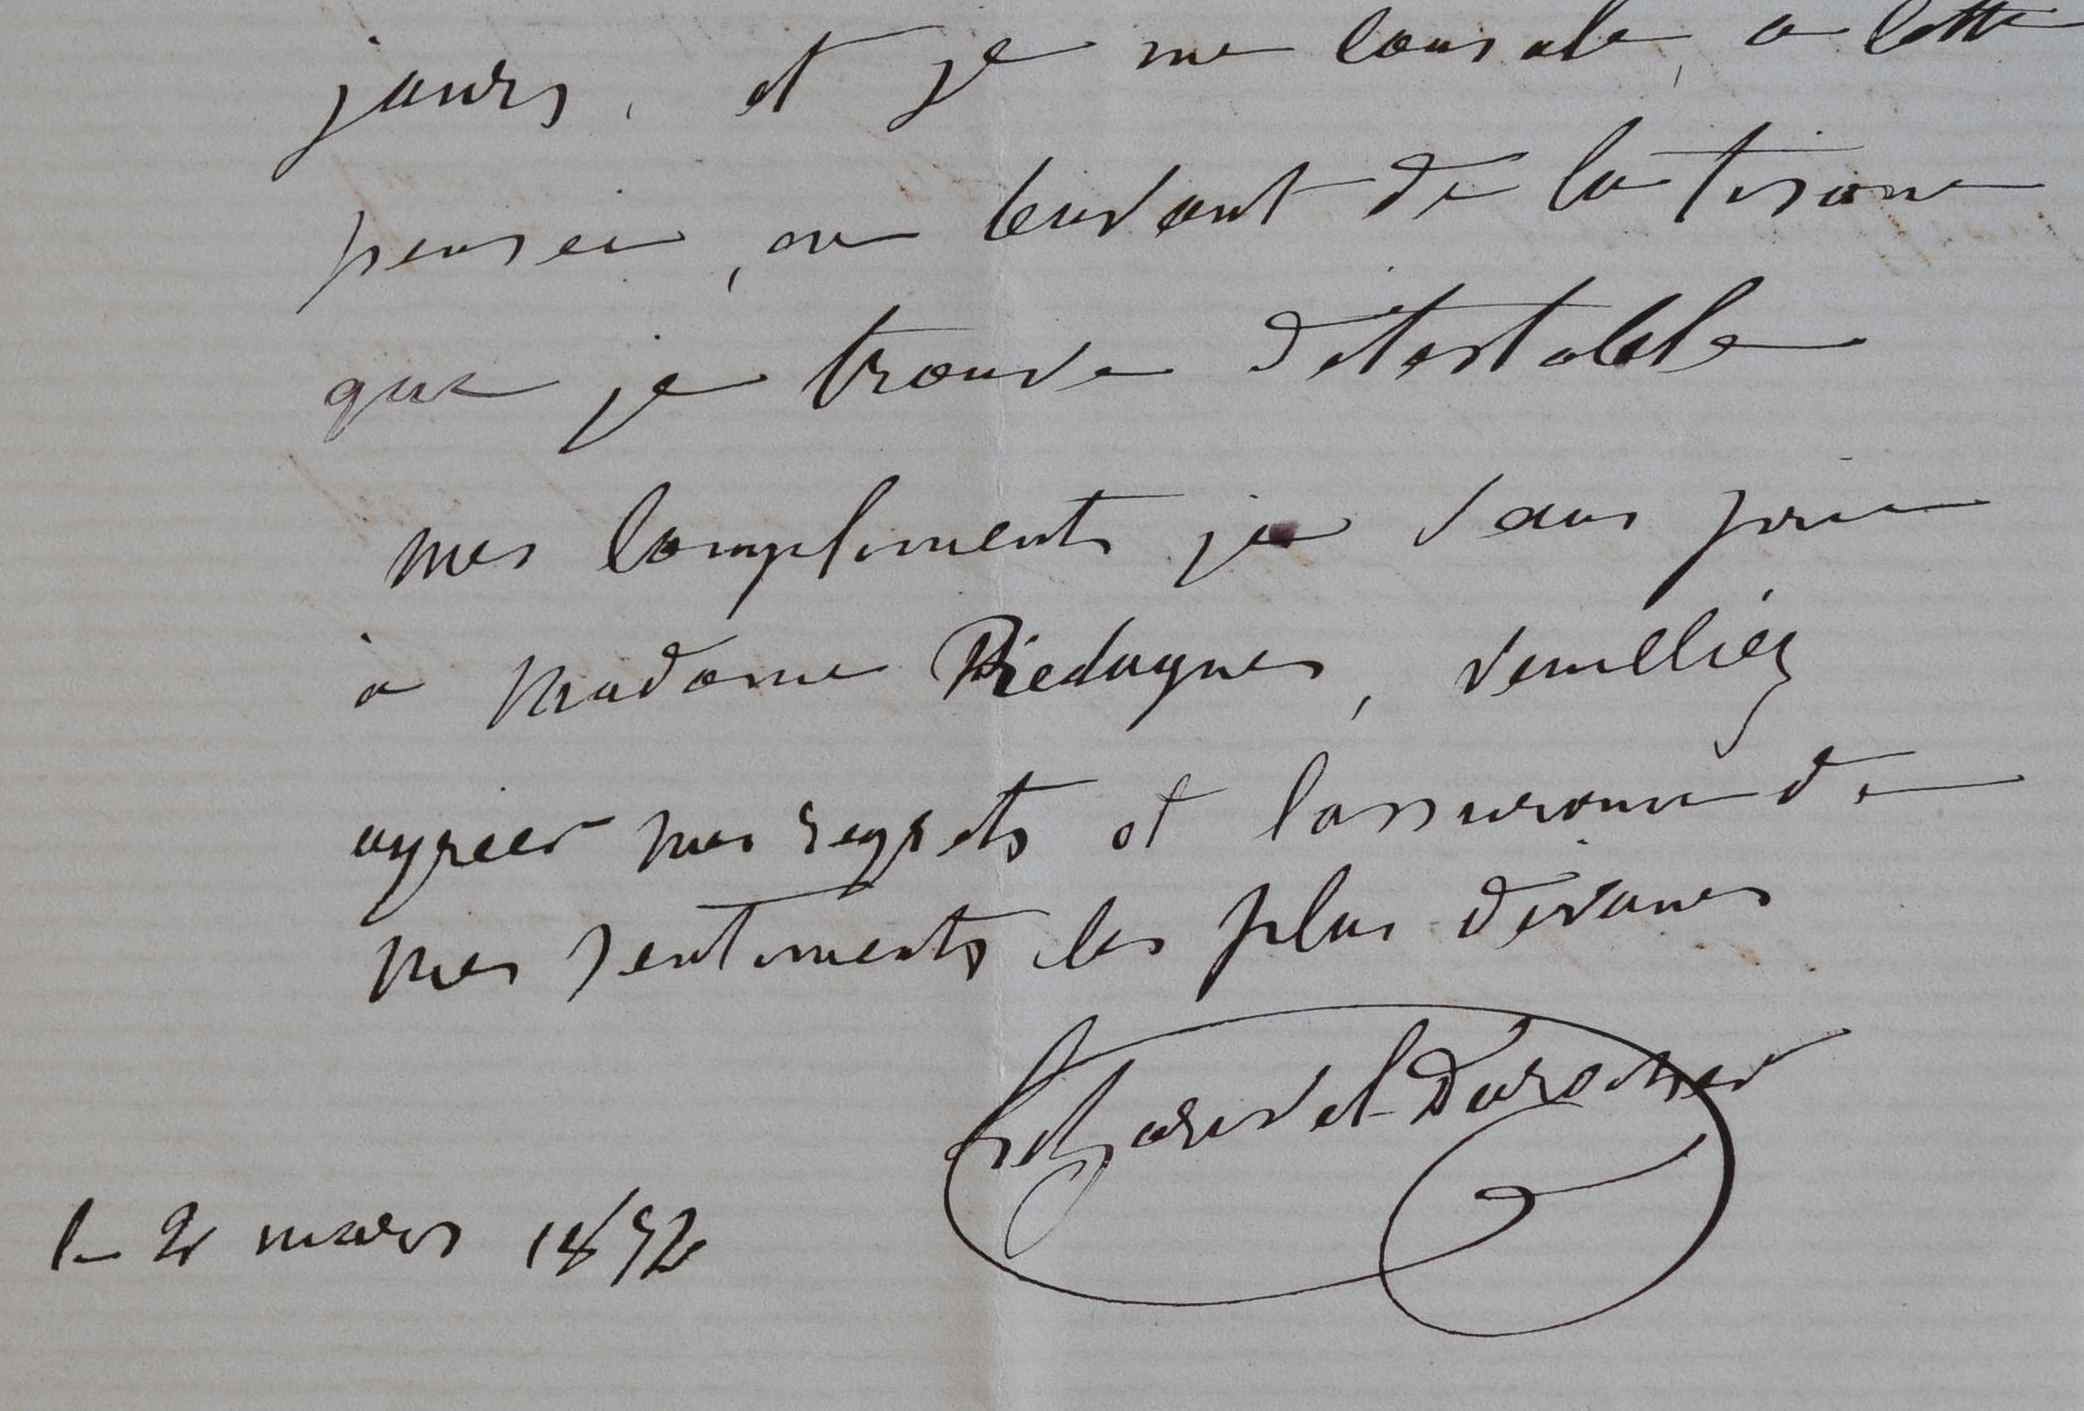 jours, et je me console, a cette
pensée, en buvant de la tisane
que je trouve détestable
mes compliments je vous prie
à Madame Piedagnes, veuilliez
agreer mes regrets et lassurance de
mes sentiments les plus devoués
Charvet-Durocher
le 2 mars 1872